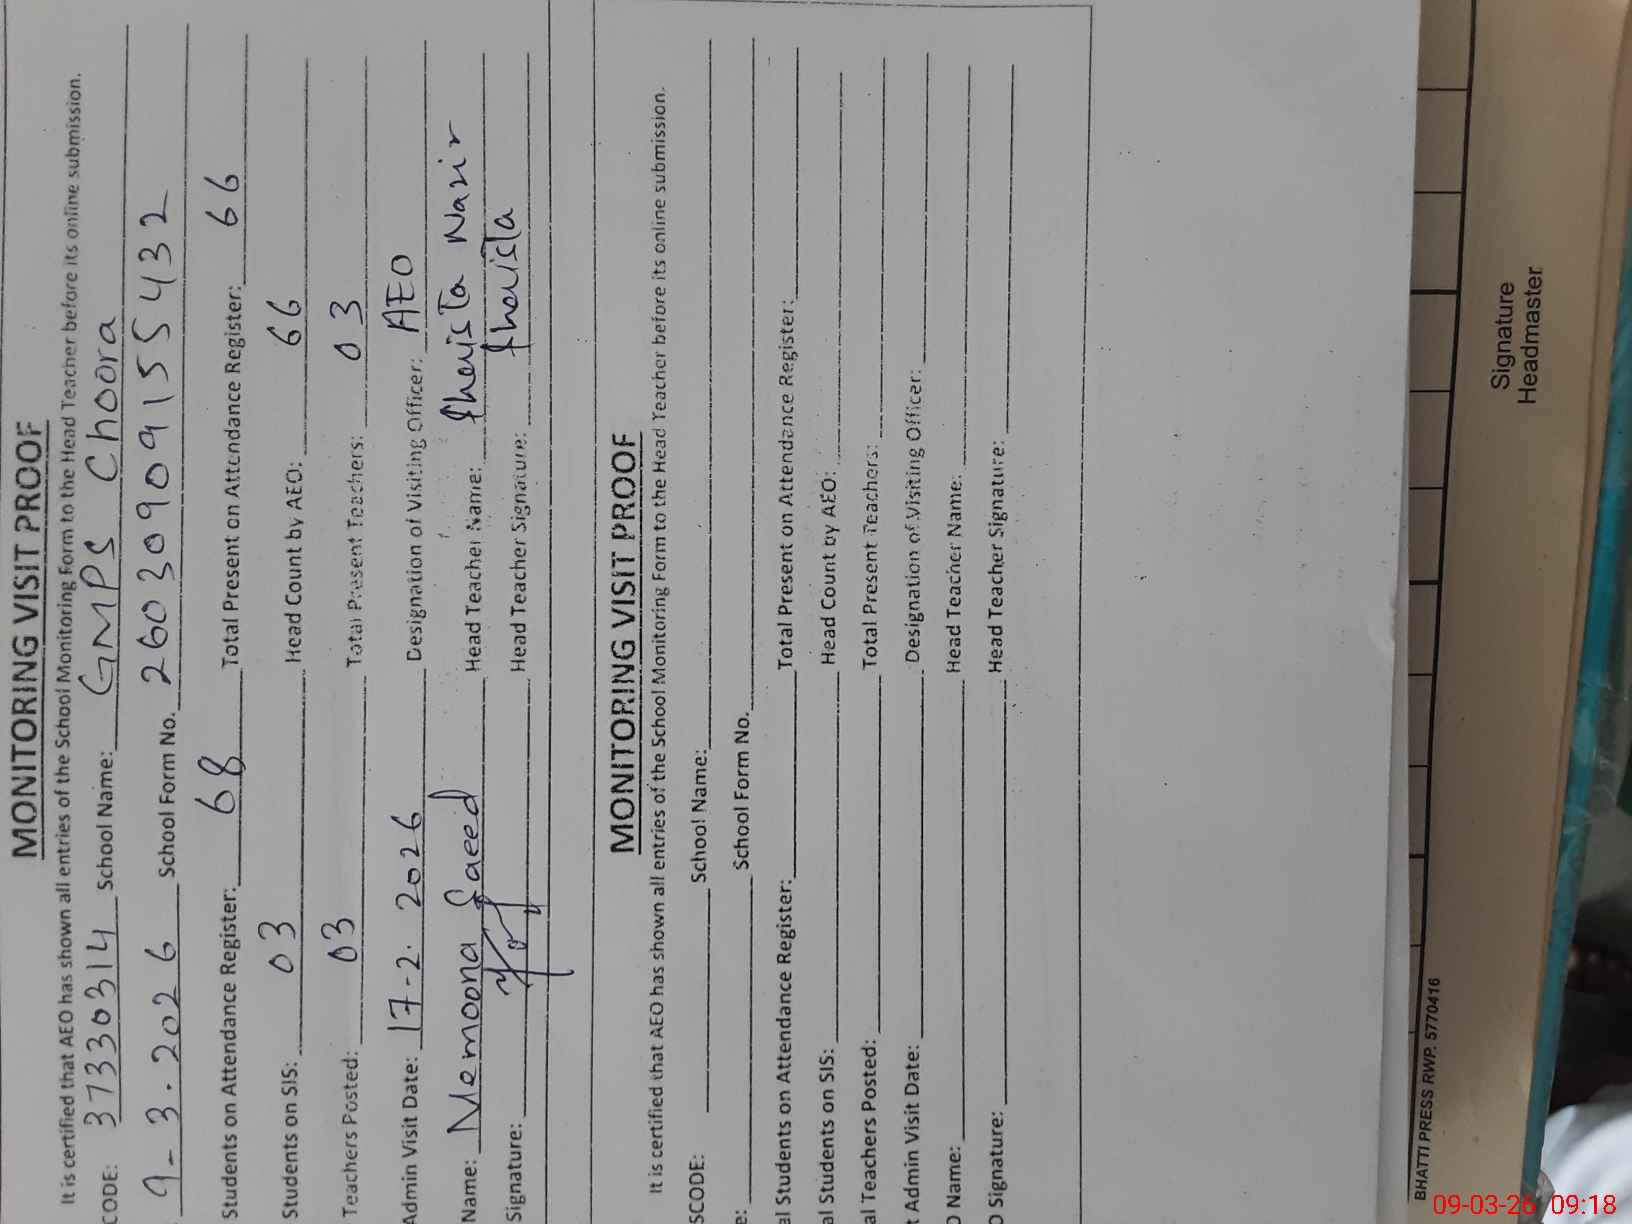 MONITORING VISIT PROOF
It is certified that AEO has shown all entries of the School Monitoring Form to the Head Teacher before its online submission.
CODE: 37330314 School Name: GMPS Choora
9-3.2026 School Form No. 26030909155432
Students on Attendance Register: 68 Total Present on Attendance Register: 66
Students on SIS: 03 Head Count by AEO: 66
Teachers Posted: 03 Total Present Teachers: 03
Admin Visit Date: 17-2.2026 Designation of Visiting Officer: AEO
Name: Memoona Saeed Head Teacher Name: Shaista Nazir
Signature: Head Teacher Signature: Shaista
MONITORING VISIT PROOF
It is certified that AEO has shown all entries of the School Monitoring Form to the Head Teacher before its online submission.
SCODE: School Name:
e: School Form No.
al Students on Attendance Register: Total Present on Attendance Register:
al Students on SIS: Head Count by AEO:
al Teachers Posted: Total Present Teachers:
t Admin Visit Date: Designation of Visiting Officer:
O Name: Head Teacher Name:
O Signature: Head Teacher Signature:
BHATTI PRESS RWP. 5770416
Signature
Headmaster
09-03-26 09:18